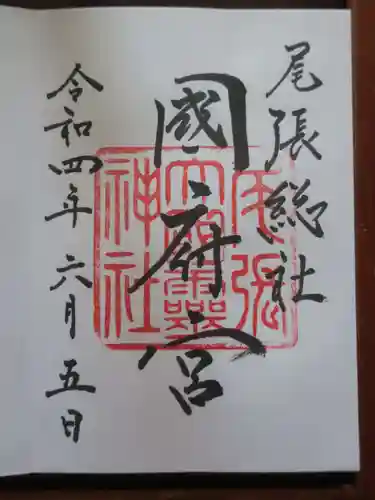 尾張総社
國府宮
令和四年六月五日
尾張大國霊神社